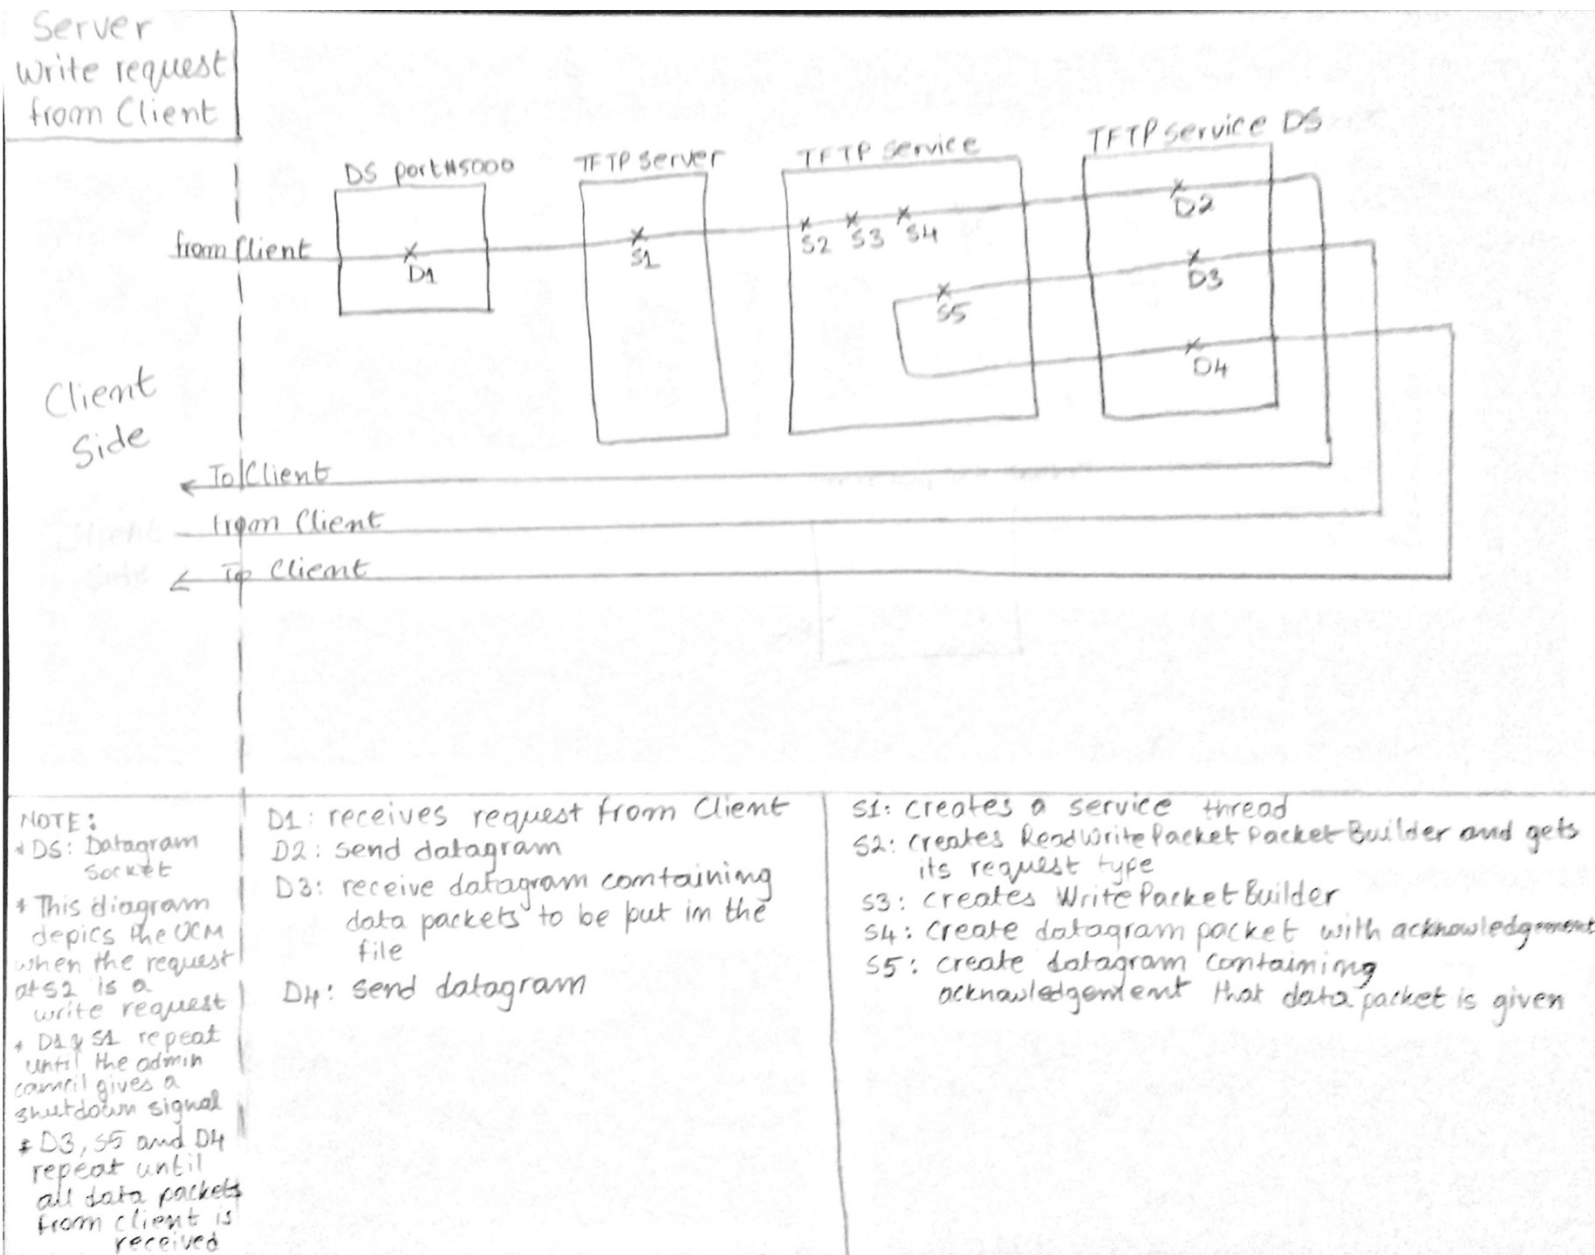 Server
Write request
from Client
DS port#5000
TFTP Server
TFTP Service
TFTP Service DS
from Client
D1
S1
S2
S3
S4
D2
S5
D3
D4
Client
Side
To Client
from Client
To Client
NOTE:
* DS: Datagram
Socket
* This diagram
depics the UCM
when the request
at S2 is a
write request
* D1 & S1 repeat
until the admin
gives a
shutdown signal
* D3, S5 and D4
repeat until
all data packets
from client is
received
D1: receives request from Client
D2: send datagram
D3: receive datagram containing
data packets to be put in the
file
D4: send datagram
S1: creates a service thread
S2: creates ReadWritePacket PacketBuilder and gets
its request type
S3: creates WritePacketBuilder
S4: create datagram packet with acknowledgement
S5: create datagram containing
acknowledgement that data packet is given